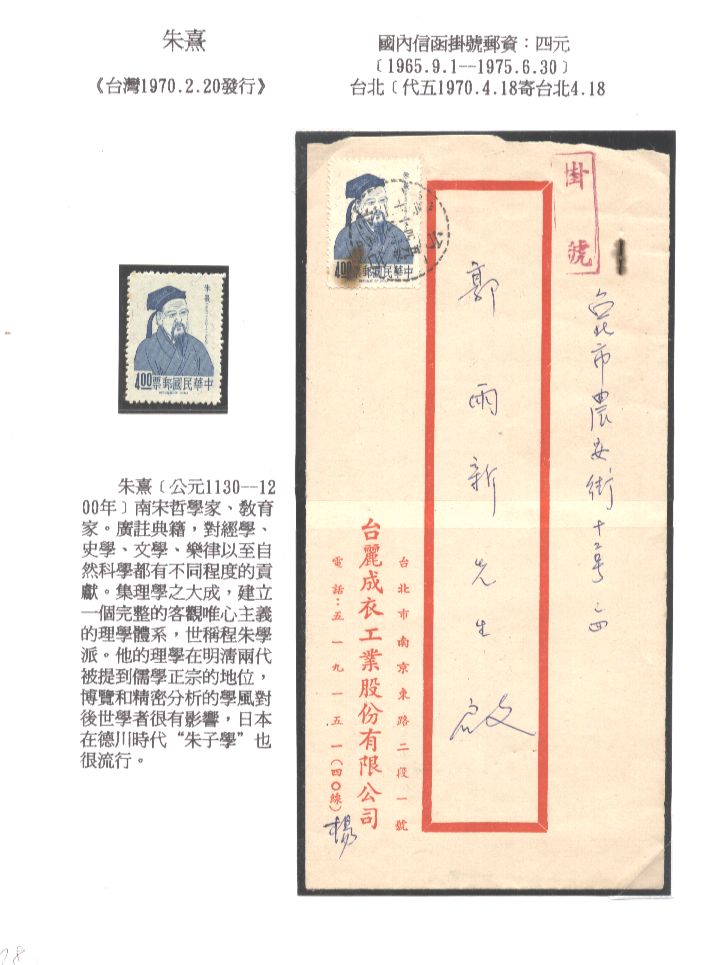 朱熹
《台灣1970.2.20發行》
國內信函掛號郵資：四元
﹝1965.9.1--1975.6.30﹞
台北﹝代五1970.4.18寄台北4.18
朱熹
4.00 票郵國民華中
REPUBLIC OF CHINA
朱熹﹝公元1130--12
00年﹞南宋哲學家、教育
家。廣註典籍，對經學、
史學、文學、樂律以至自
然科學都有不同程度的貢
獻。集理學之大成，建立
一個完整的客觀唯心主義
的理學體系，世稱程朱學
派。他的理學在明清兩代
被提到儒學正宗的地位，
博覽和精密分析的學風對
後世學者很有影響，日本
在德川時代“朱子學”也
很流行。
4.00 票郵國民華中
掛號
台北市農安街十二号之四
郭雨新先生啟
台北市南京東路二段一號
台麗成衣工業股份有限公司
電話：五一九一五一(四○線)
楊